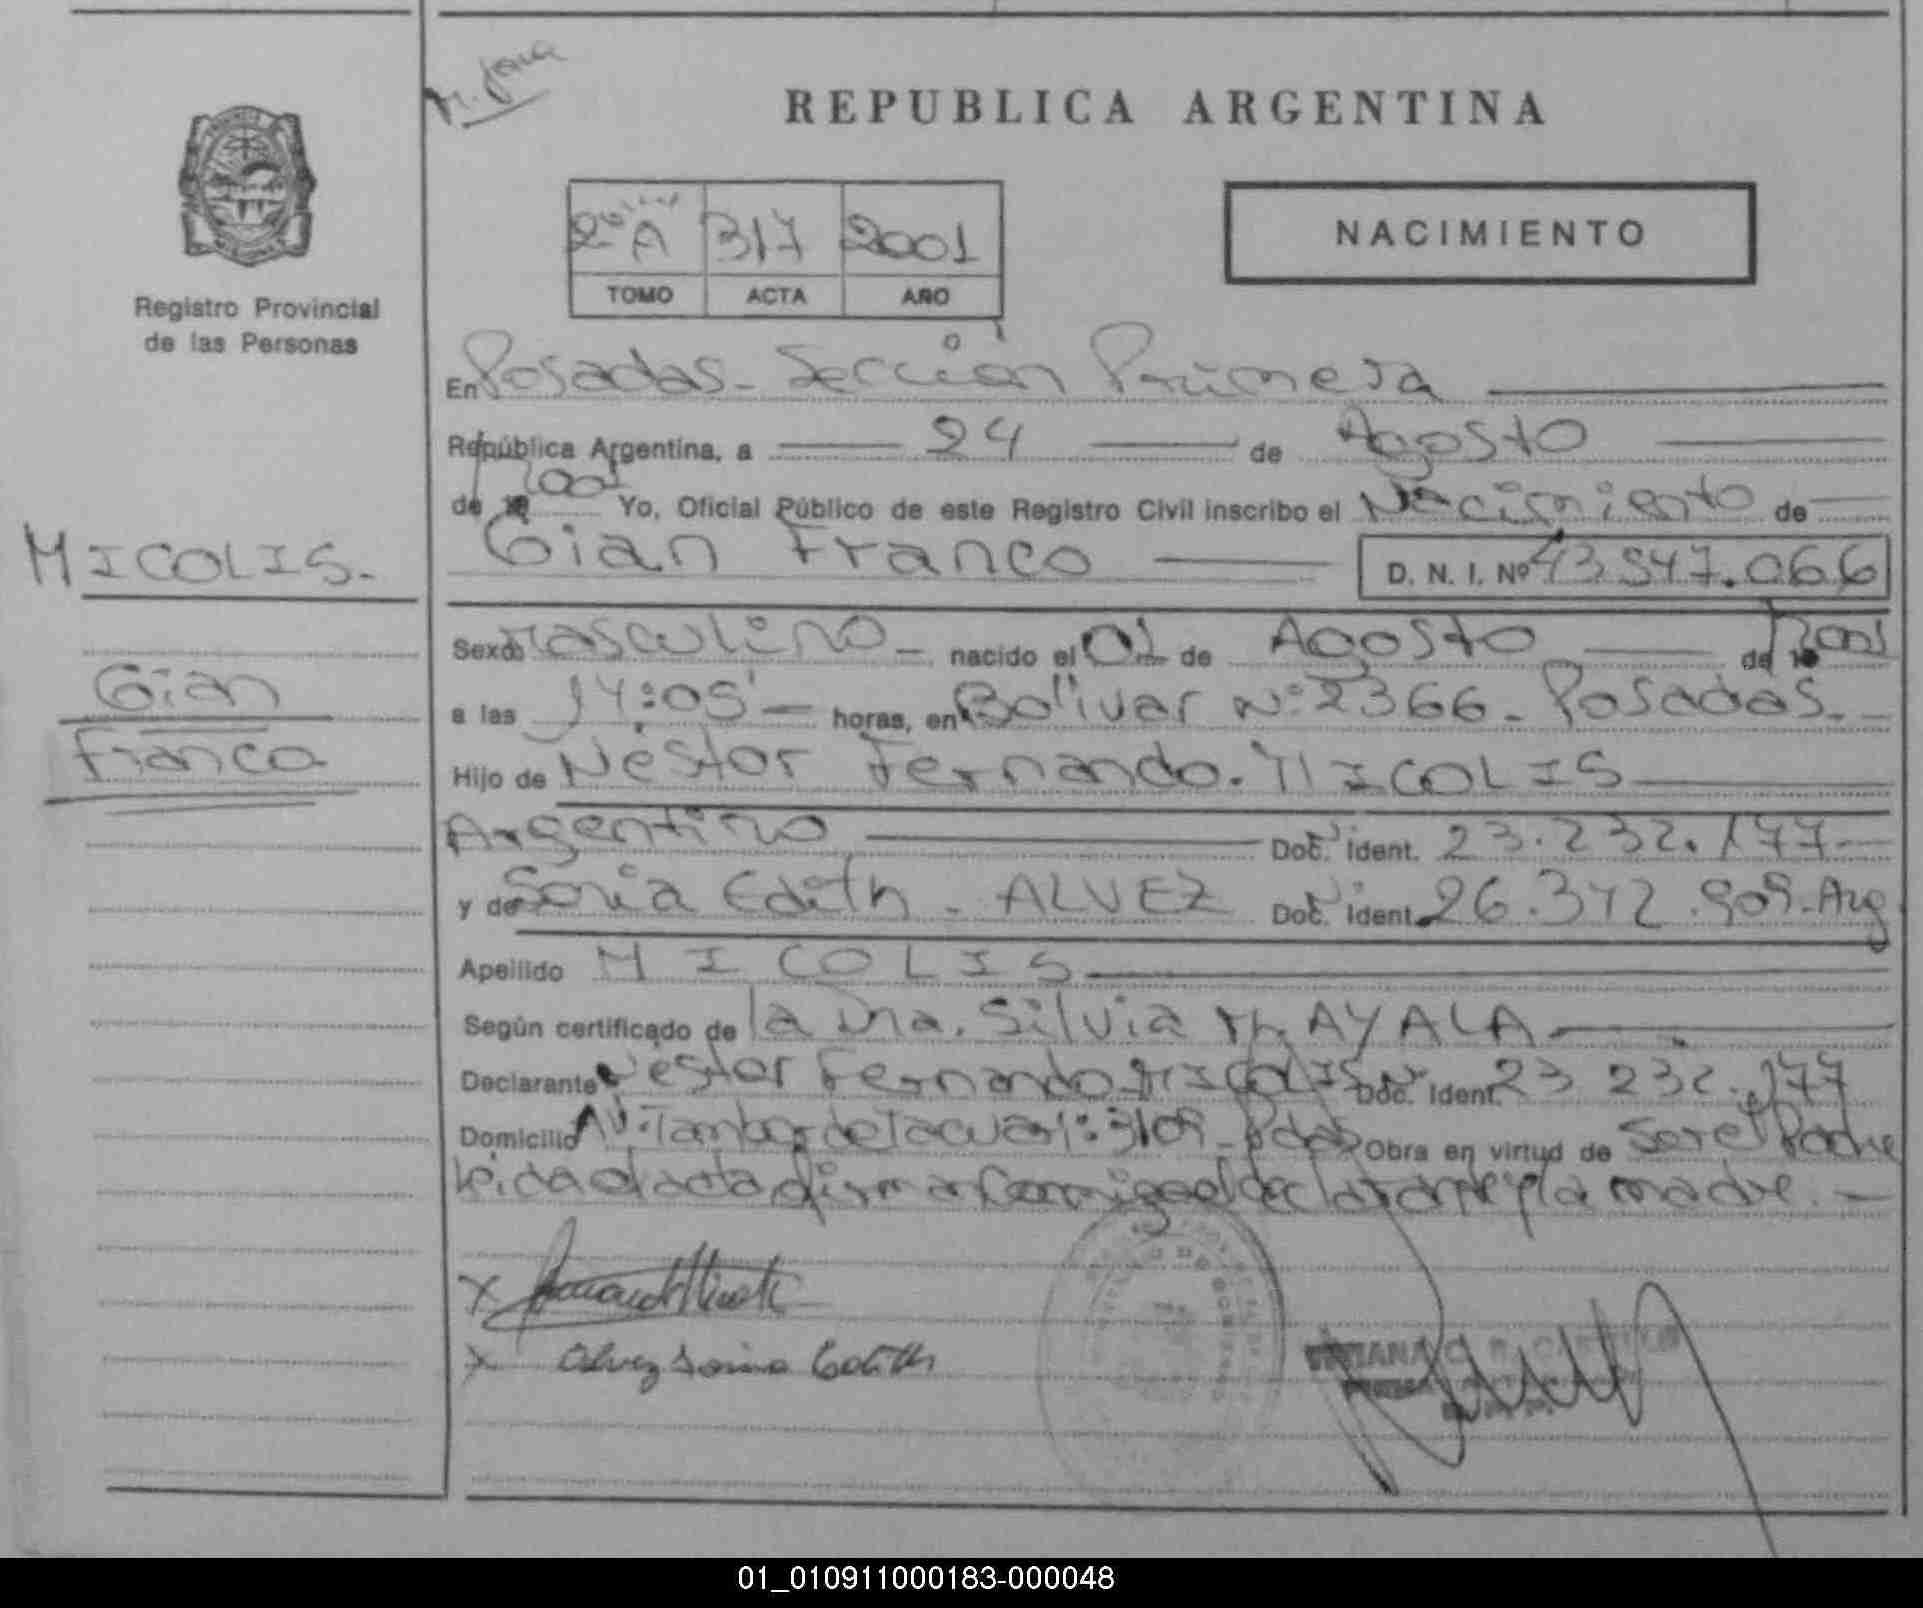 REPUBLICA ARGENTINA
Registro Provincial
de las Personas
2º A 317 2001
TOMO ACTA AÑO
NACIMIENTO
En Posadas - Sección Primera
República Argentina, a 24 de Agosto
de 2001 Yo, Oficial Público de este Registro Civil inscribo el Nacimiento de
Gian Franco D. N. I. Nº 43.547.066
MICOLIS.-
Gian
Franco
Sexo masculino - nacido el 01 de Agosto de 2001
a las 14:05' - horas, en Bolivar Nº: 2366 - Posadas. -
Hijo de Néstor Fernando. MICOLIS
Argentino Doc. Ident. 23.232.177-
y de Sonia Edith - ALVEZ Doc. Ident. 26.342.909-Arg
Apellido MICOLIS
Según certificado de la Dra. Silvia M. AYALA
Declarante Néstor Fernando MICOLIS Doc. Ident. 23 232.177
Domicilio Av. Tambor de Tacuari: 3109 - Pdas Obra en virtud de ser el Padre
leida el acta firman conmigo el declarante y la madre. -
x
x Alvez Sonia Edith
01_010911000183-000048